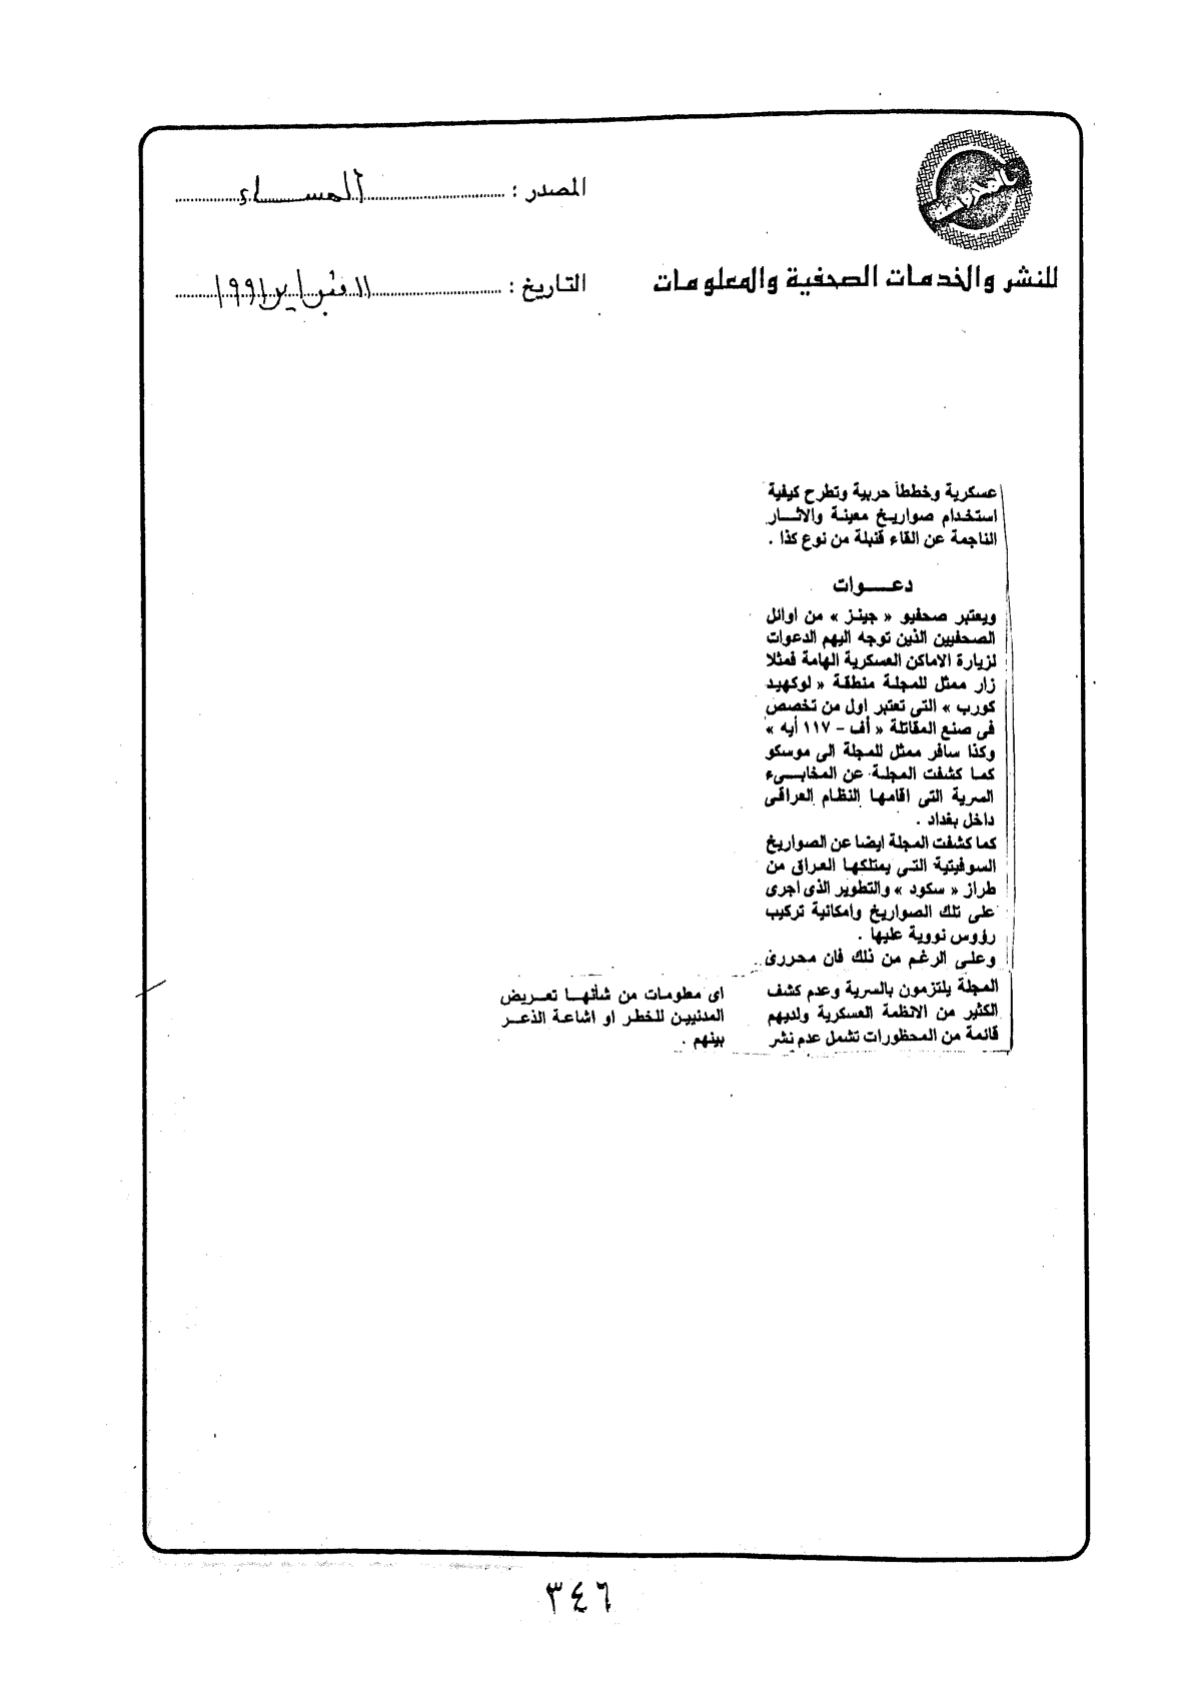 المصدر : المساء
للنشر والخدمات الصحفية والمعلومات
التاريخ : ١١ فبراير ١٩٩١
عسكرية وخططاً حربية وتطرح كيفية
استخدام صواريخ معينة والاثار
الناجمة عن القاء قنبلة من نوع كذا .
دعوات
ويعتبر صحفيو « جينز » من اوائل
الصحفيين الذين توجه اليهم الدعوات
لزيارة الاماكن العسكرية الهامة فمثلا
زار ممثل للمجلة منطقة « لوكهيد
كورب » التى تعتبر اول من تخصص
فى صنع المقاتلة « أف - ١١٧ أيه »
وكذا سافر ممثل للمجلة الى موسكو
كما كشفت المجلة عن المخابىء
السرية التى اقامها النظام العراقى
داخل بغداد .
كما كشفت المجلة ايضا عن الصواريخ
السوفيتية التى يمتلكها العراق من
طراز « سكود » والتطوير الذى اجرى
على تلك الصواريخ وامكانية تركيب
رؤوس نووية عليها .
وعلى الرغم من ذلك فان محررى
المجلة يلتزمون بالسرية وعدم كشف
الكثير من الانظمة العسكرية ولديهم
قائمة من المحظورات تشمل عدم نشر
اى معلومات من شأنها تعريض
المدنيين للخطر او اشاعة الذعر
بينهم .
٣٤٦